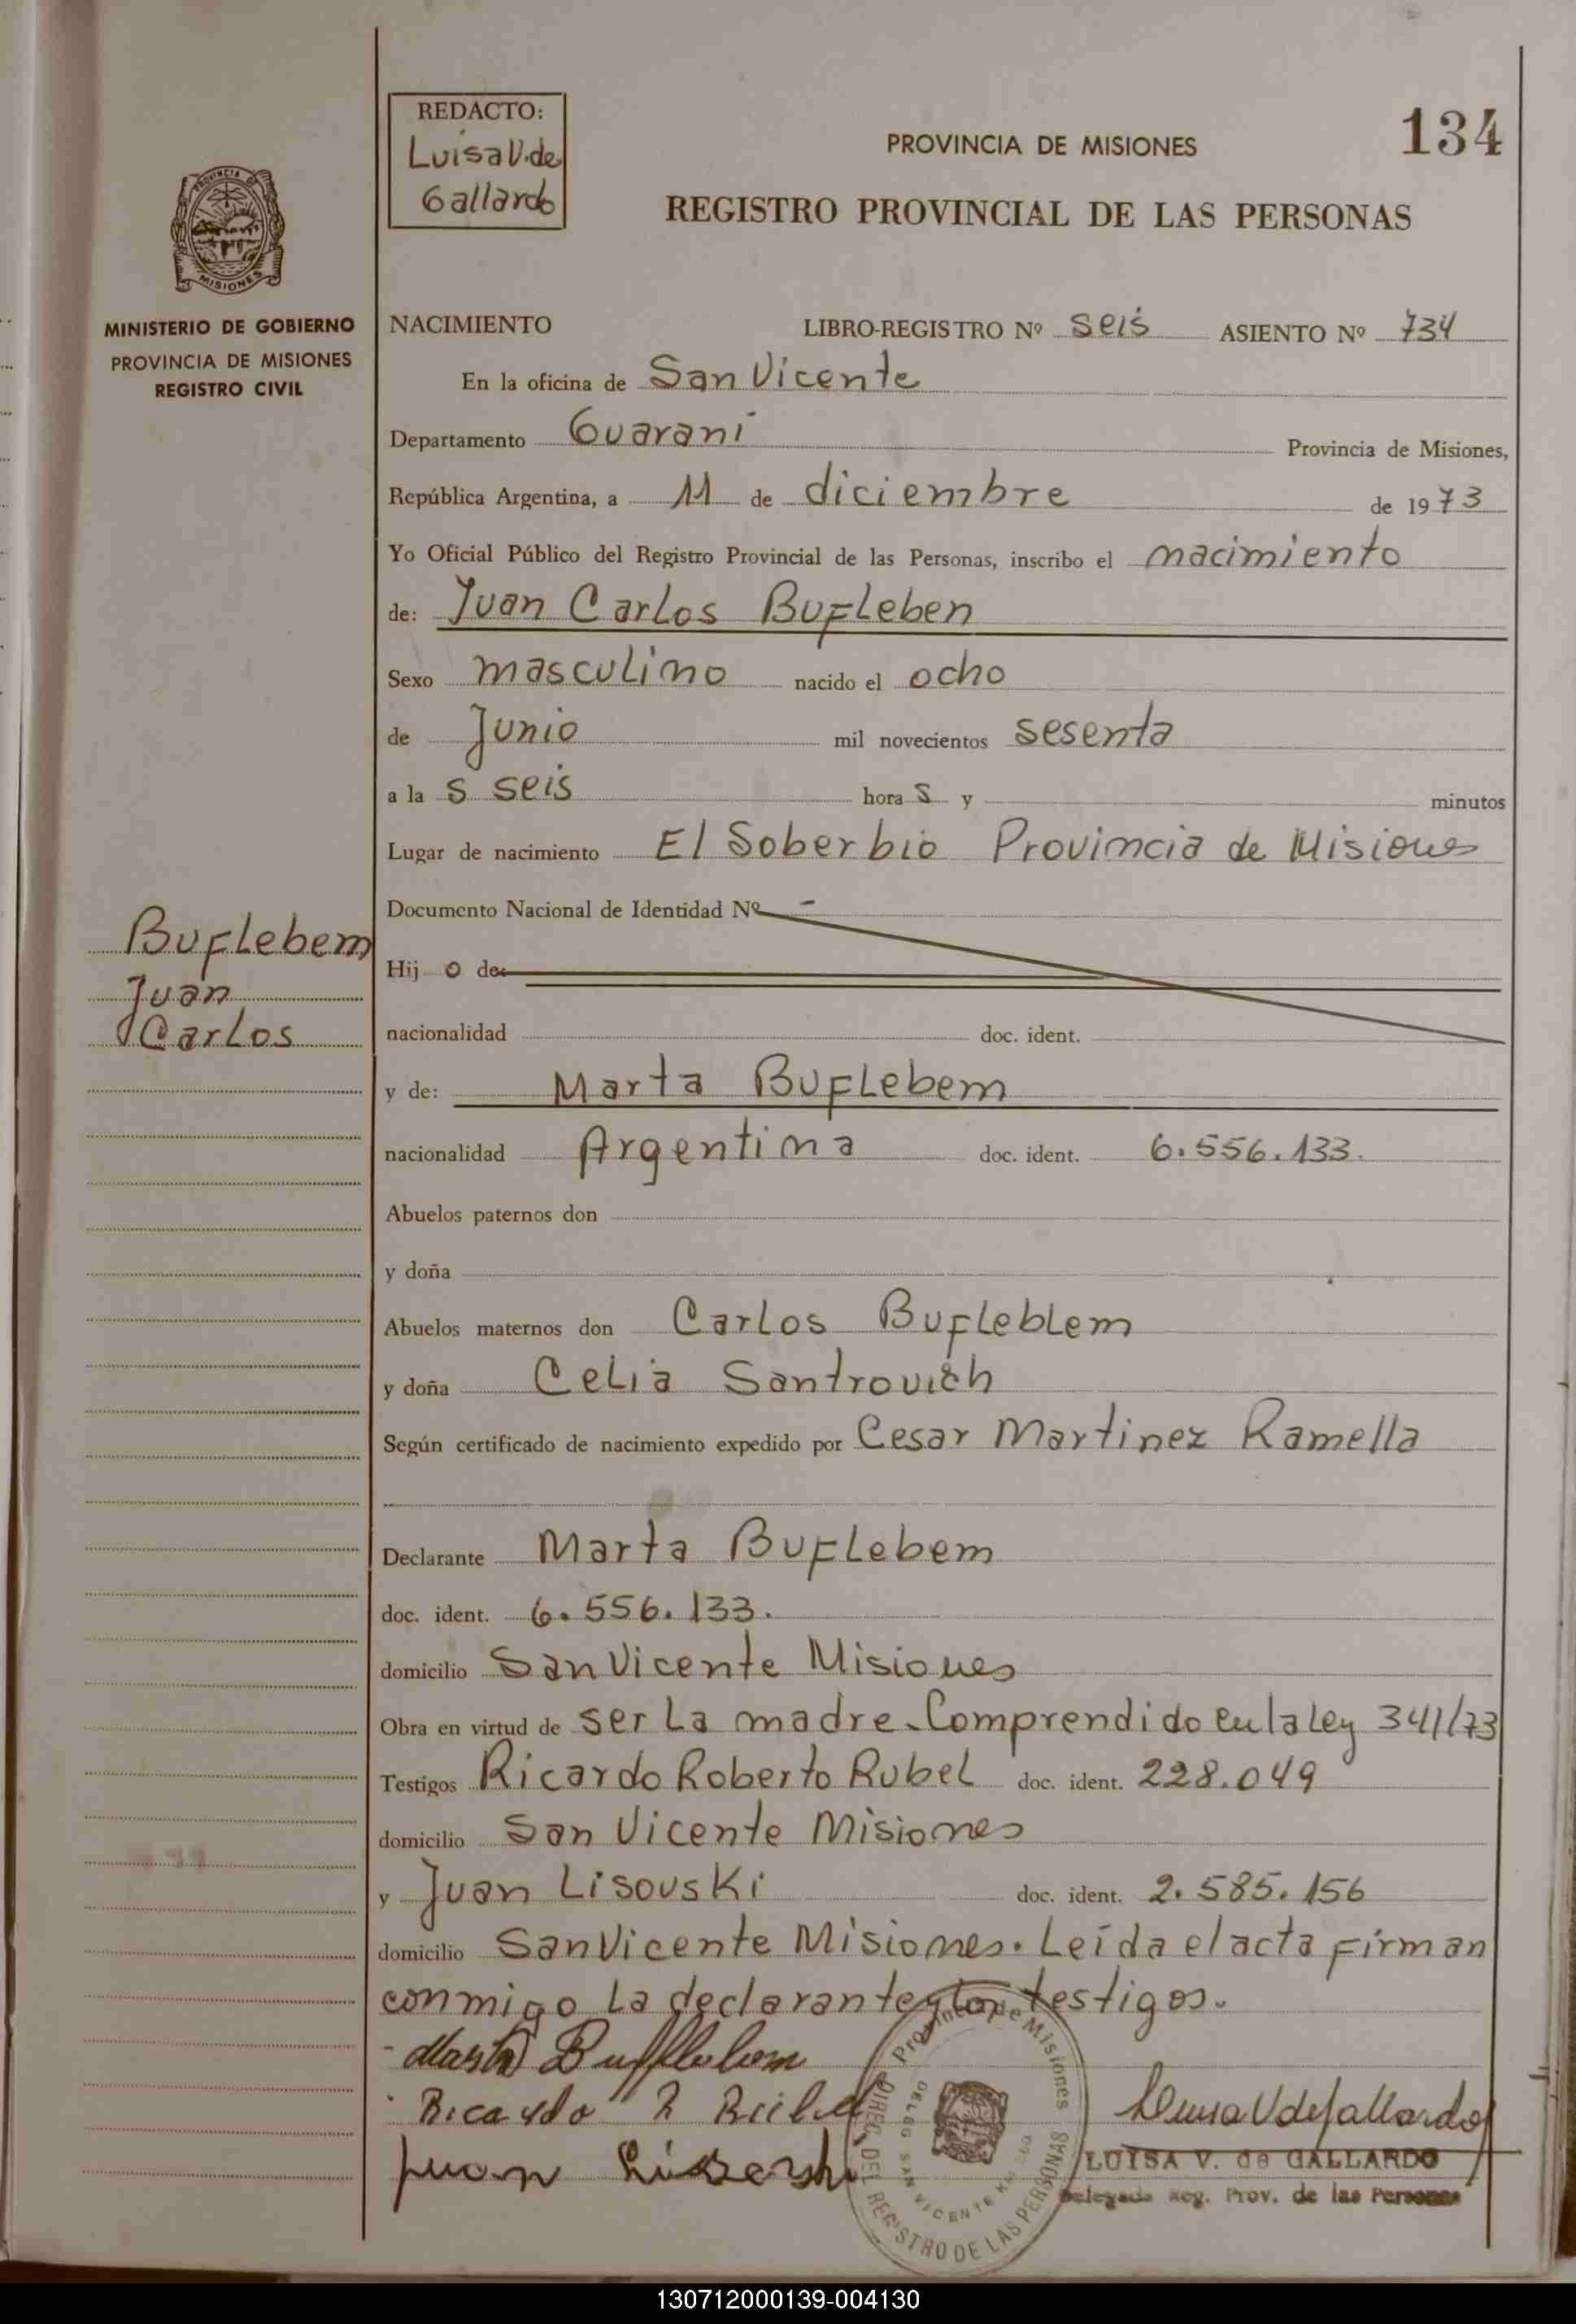 REDACTO:
Luisa V. de
Gallardo
PROVINCIA DE MISIONES
134
REGISTRO PROVINCIAL DE LAS PERSONAS
PROVINCIA DE
MISIONES
MINISTERIO DE GOBIERNO
PROVINCIA DE MISIONES
REGISTRO CIVIL
NACIMIENTO LIBRO-REGISTRO Nº seis ASIENTO Nº 734
En la oficina de San Vicente
Departamento Guarani Provincia de Misiones,
República Argentina, a 11 de diciembre de 1973
Yo Oficial Público del Registro Provincial de las Personas, inscribo el nacimiento
de: Juan Carlos Bufleben
Sexo masculino nacido el ocho
de Junio mil novecientos sesenta
a la s seis hora s y minutos
Lugar de nacimiento El Soberbio Provincia de Misiones
Documento Nacional de Identidad Nº -
Buflebem
Juan
Carlos
Hij o de:
nacionalidad doc. ident.
y de: Marta Buflebem
nacionalidad Argentina doc. ident. 6.556.133.
Abuelos paternos don
y doña
Abuelos maternos don Carlos Bufleblem
y doña Celia Santrovich
Según certificado de nacimiento expedido por Cesar Martinez Ramella
Declarante Marta Buflebem
doc. ident. 6.556.133.
domicilio San Vicente Misiones
Obra en virtud de ser La madre. Comprendido en la Ley 341/73
Testigos Ricardo Roberto Rubel doc. ident. 228.049
domicilio San Vicente Misiones
y Juan Lisouski doc. ident. 2.585.156
domicilio San Vicente Misiones. Leída el acta firman
conmigo La declarante y los testigos.
Marta Bufflebem
Ricardo R Rubel
Juan
Luisa V de Gallardo
LUISA V. de GALLARDO
Delegada Reg. Prov. de las Personas
Provincia de Misiones
DIREC. DEL REGISTRO DE LAS PERSONAS
DELEG SAN VICENTE
130712000139-004130